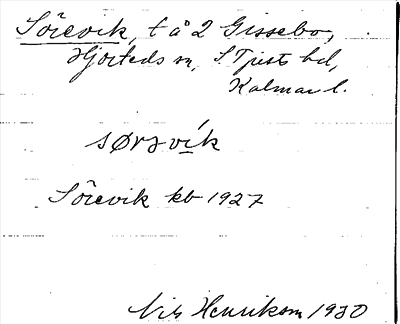 Sörevik, t å 2 Gissebo,
Hjorteds sn, S. Tjusts hd,
Kalmar l.
sørvík
Sörevik kb 1927
Nils Henrikson 1930